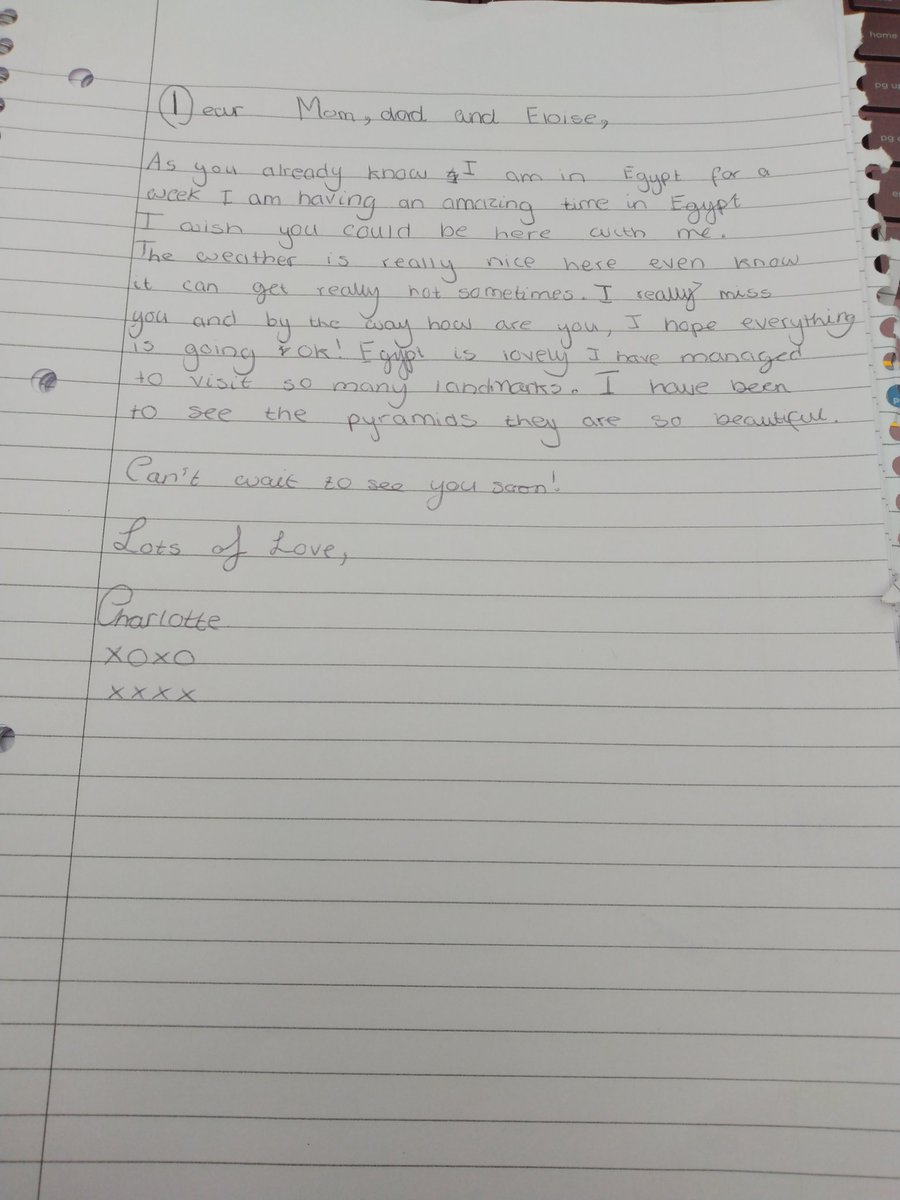 Dear Mom, dad and Eloise,
As you already know I am in Egypt for a
week I am having an amazing time in Egypt
I wish you could be here with me.
The weather is really nice here even know
it can get really hot sometimes. I really miss
you and by the way how are you, I hope everything
is going ok! Egypt is lovely I have managed
to visit so many landmarks. I have been
to see the pyramids they are so beautiful.
Can't wait to see you soon!
Lots of Love,
Charlotte
XOXO
xxxx
home
pg
pg